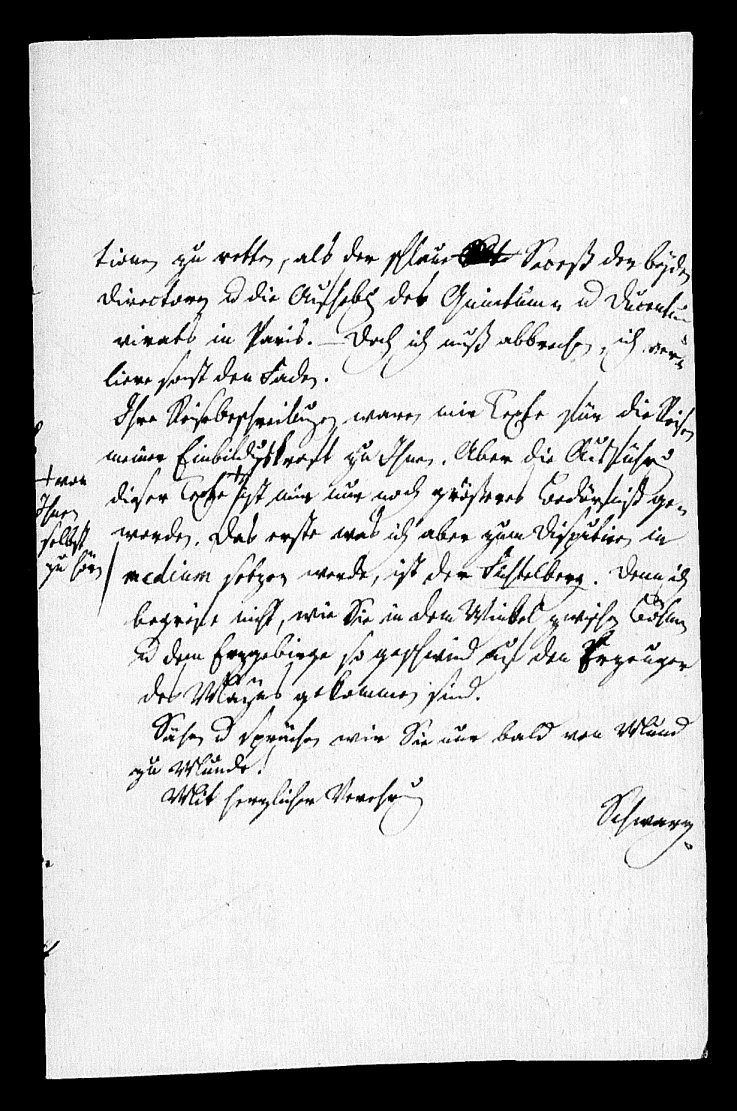 tionen zu retten, als der schlaue Seceß der beyden
Directoren u die Aufhebg des Quinctum- u Ducentum-
virats in Paris. – Doch ich muß abbrechen, ich ver-
liere sonst den Faden.
Ihre Reisebeschreibungen waren mir Texte für die Reisen
meiner Einbildungskraft zu Ihnen. Aber die Ausführg
dieser Texte + ist mir nur noch größeres Bedürfniß ge-
worden. Das erste was ich aber zum Disputiren in
medium setzen werde, ist der Fichtelberg. Denn ich
begreife nicht, wie Sie in dem Winkel zwischen Böhmen
u dem Erzgebirge so geschwind auf den Erzeuger
des Mayns gekommen sind.
Sähen u sprächen wir Sie nur bald von Mund
zu Munde!
Mit herzlicher Verehrung
Schwarz.
+ von
Ihnen
selbst
zu hören